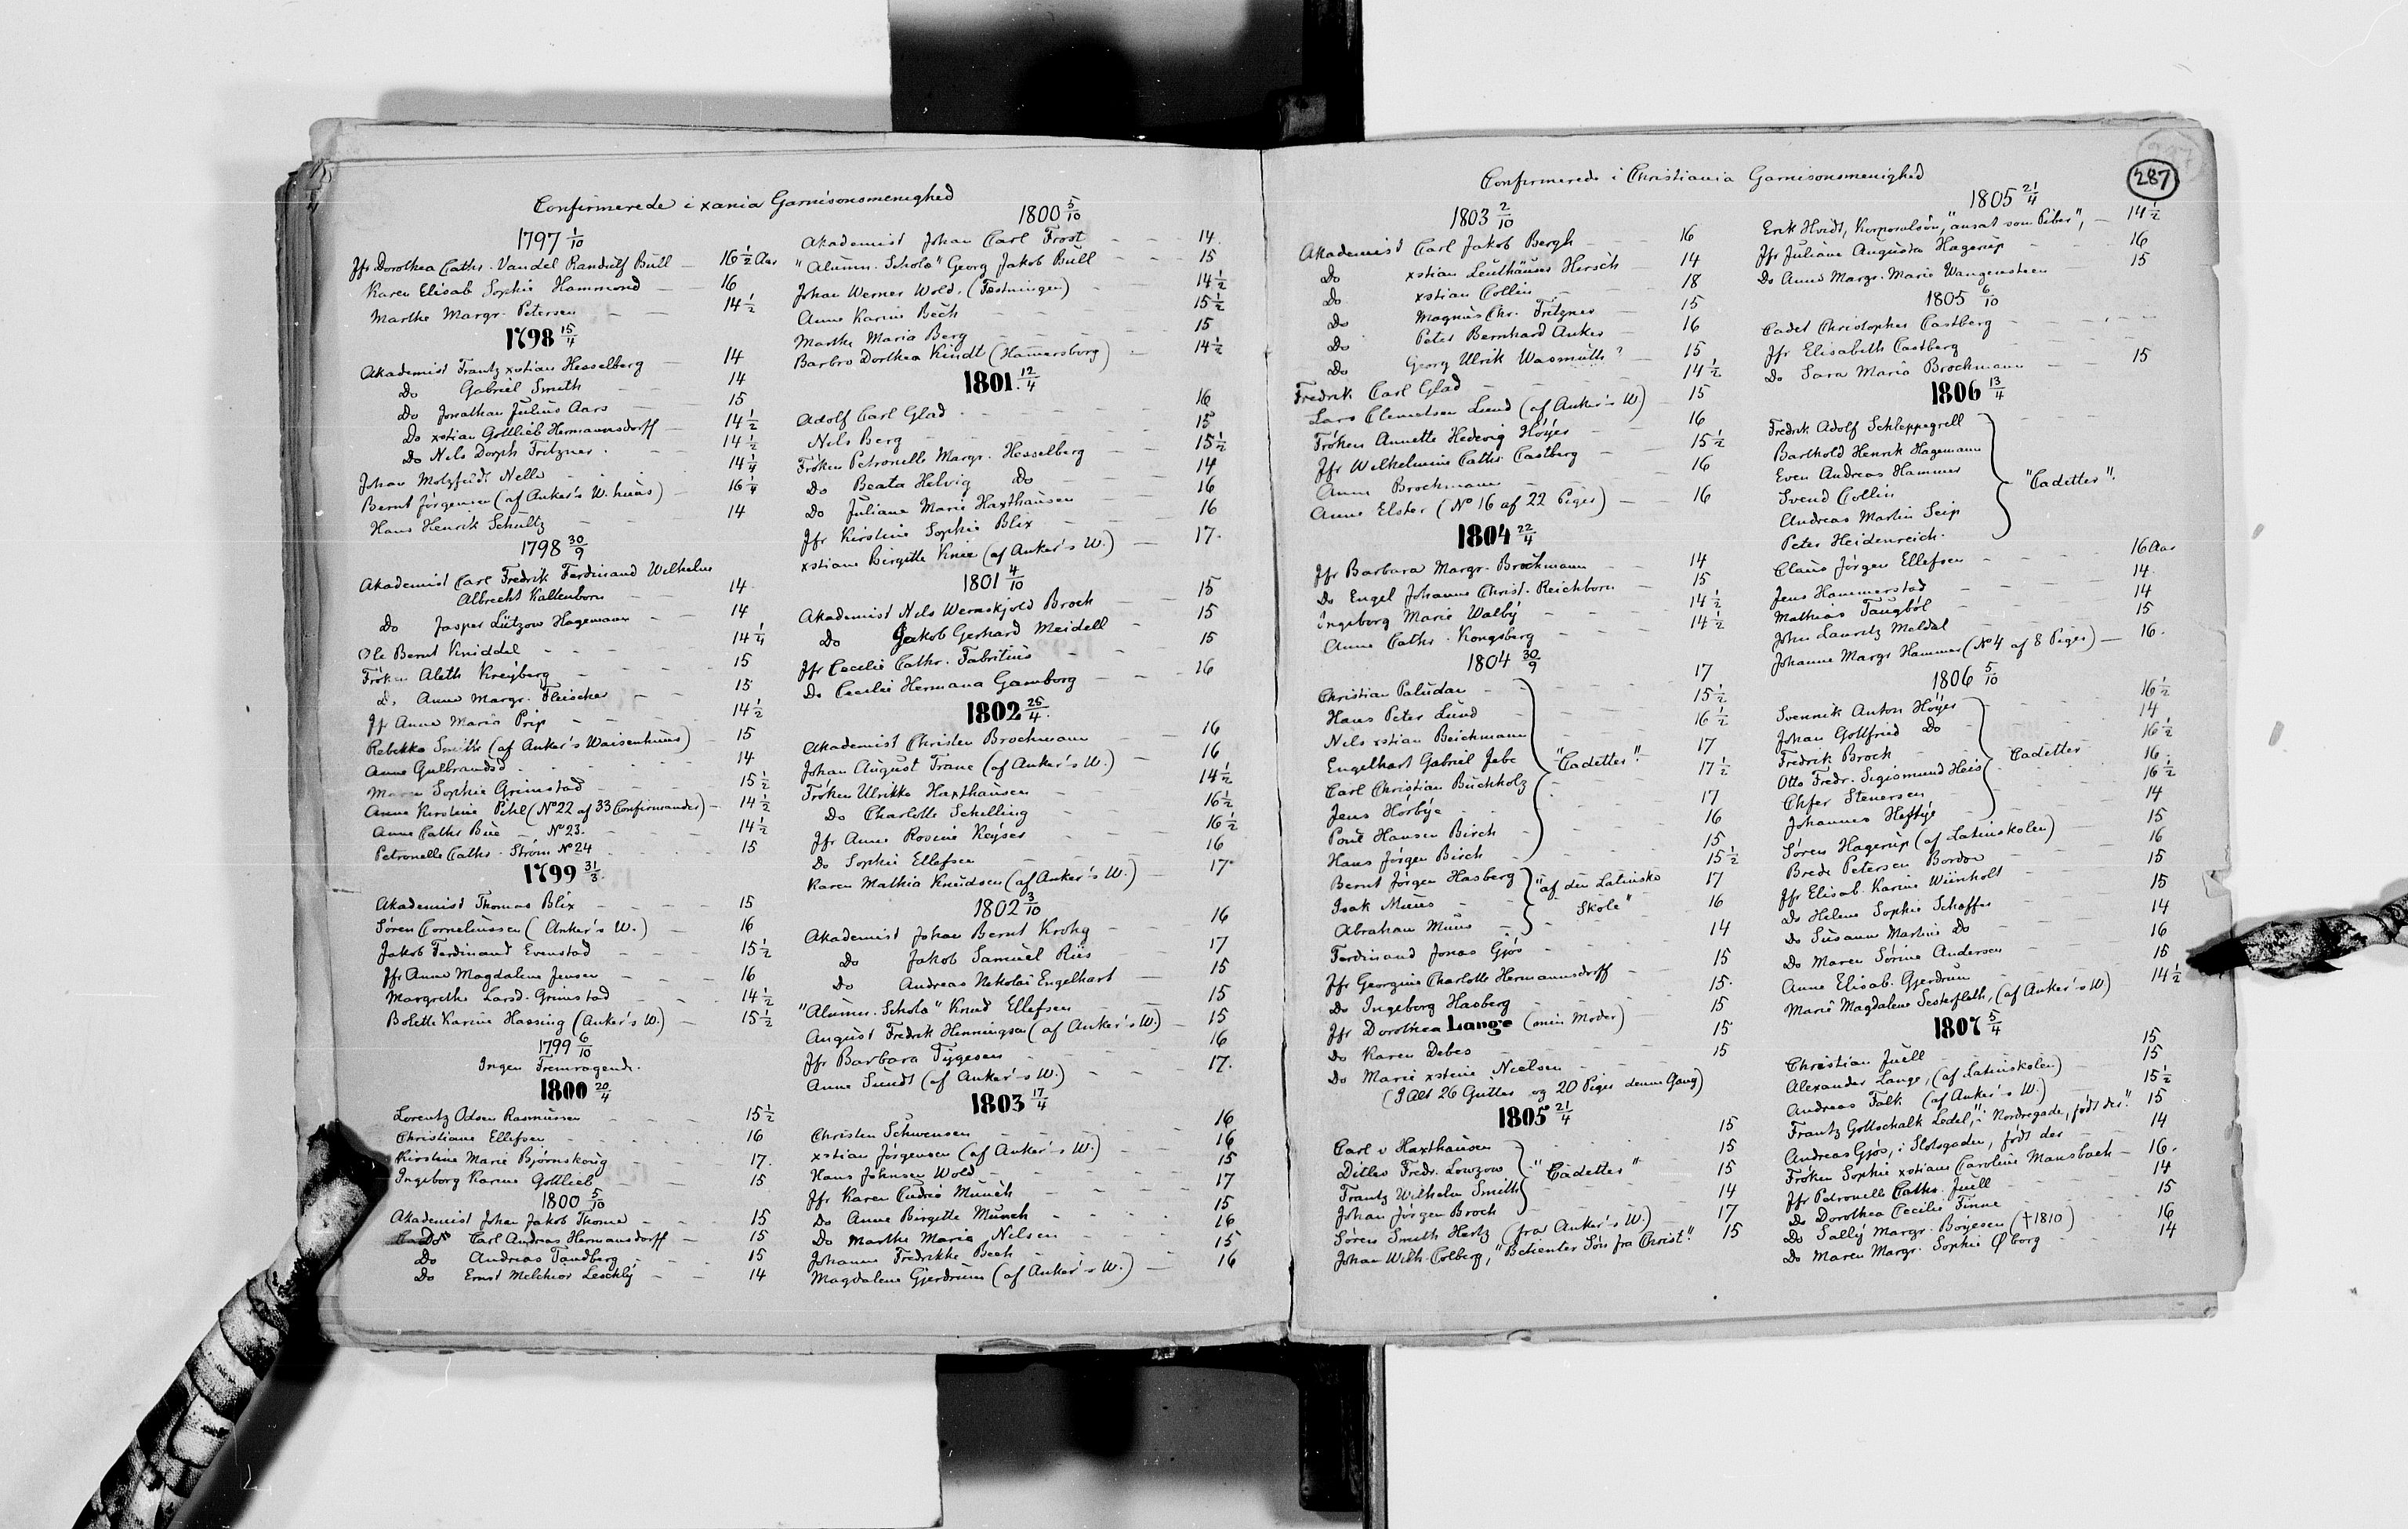 Confirmerede i xania Garnisonsmenighed
1797 1/10
Jfr Dorothea Cathr. Vandel Randulf Bull — 16 1/2 Aar
Karen Elisab Sophie Hammond — 16
Marthe Margr. Petersen — 14 1/2
1798 15/4
Akademist Frantz xstian Hesselberg — 14
Do Gabriel Smith — 14
Do Jonathan Julius Aars — 15
Do xstian Gottlieb Hermannsdorff — 14 1/2
Do Nils Dorph Fritzner. — 14 1/2
Johan Motzfeldt Nelle — 14 1/4
Bernt Jørgensen (af Anker's W. huus) — 16 1/4
Hans Henrik Schultz — 14
1798 30/9
Akademist Carl Fredrik Ferdinand Wilhelm
Albrecht Kaltenborn — 14
Do Jasper Lützow Hagemann — 14
Ole Bernt Kniddel — 14 1/4
Frøken Aleth Kreyberg — 15
do Anne Margr. Fleischer — 15
Jfr Anne Maria Prip — 14 1/2
Rebekka Smith (af Anker's Waisenhuus) — 15
Anne Gulbrandsd — 14
Maren Sophie Grimstad — 15 1/2
Anne Kirstine Pihl (No 22 af 33 Confirmander) — 14 1/2
Anne Cathr Bue — No 23. — 14 1/2
Petronelle Cathr. Strøm No 24 — 15
1799 31/3
Akademist Thomas Blix — 15
Søren Corneliussen (Anker's W.) — 16
Jakob Ferdinand Evenstad — 15 1/2
Jfr Anne Magdalene Jensen — 16
Margrethe Larsd. Grimstad — 14 1/2
Bolette Karine Hassing (Anker's W.) — 15 1/2
1799 6/10
Ingen Fremragende.
1800 20/4
Lorentz Odsen Rasmussen — 15 1/2
Christiane Ellefsen — 16
Kirstine Marie Bjørnskoug — 17.
Ingeborg Karine Gottlieb — 15
1800 5/10
Akademist Johan Jakob Thome — 15
Do Carl Andreas Hermansdorff — 15
Do Andreas Tandberg — 15
Do Ernst Melchior Leschly — 14
1800 5/10
Akademist Johan Carl Frost — 14.
"Alumn. Schola" Georg Jakob Bull — 15
Johan Werner Wold. (Fæstningen) — 14 1/2
Anne Karine Bech — 15 1/2
Marthe Maria Berg — 15
Barbro Dorthea Kindt (Hamersborg) — 14 1/2
1801. 12/4
Adolf Carl Glad — 16
Nils Berg — 15
Frøken Petronelle Margr. Hesselberg — 15 1/2
Do Beata Helvig Do — 14
Do Juliane Marie Haxthausen — 16
Jfr Kirstine Sophie Blix — 16
xstiane Birgitte Knie (af Anker's W.) — 17.
1801 4/10
Akademist Nils Wernskjold Broch — 15
Do Jakob Gerhard Meidell — 15
Jfr Cecilie Cathr. Fabritius — 15
Do Cecilie Hermana Gamborg — 16
1802 25/4.
Akademist Christen Brochmann — 16
Johan August Trane (af Anker's W.) — 16
Frøken Ulrikke Haxthausen — 14 1/2
Do Charlotte Schelling — 16 1/2
Jfr Anne Rosine Keyser — 16 1/2
Do Sophie Ellefsen — 16
Karen Mathia Knudsen (af Anker's W.) — 17.
1802 3/10
Akademist Johan Bernt Krohg — 16
Do Jakob Samuel Riis — 17
Do Andreas Nikolai Engelhart — 15
"Alumn. Schola" Knud Ellefsen — 15
August Fredrik Henningsen (af Anker's W.) — 15
Jfr Barbara Tygesen — 16
Anne Sundt (af Anker's W.) — 17.
1803 17/4
Christen Schwensen — 16
xstian Jørgensen (af Anker's W.) — 16
Hans Johnsen Wold — 15
Jfr Karen Cudrio Munch — 17
Do Anne Birgitte Munch — 15
Do Marthe Maria Nilsen — 16
Johanne Fredrikke Bech — 15
Magdalene Gjerdrum (af Anker's W.) — 16
Confirmerede i Christiania Garnisonsmenighed
287
1803 2/10
Akademist Carl Jakob Bergh — 16
Do xstian Leuthäuser Hersch — 14
Do xstian Collin — 18
Do Magnus Chr. Fritzner — 15
Do Peter Bernhard Anker — 16
Do Georg Ulrik Wasmuth? — 15
Fredrik Carl Glad — 14 1/2
Lars Clemetsen Lund (af Anker's W.) — 15
Frøken Annette Hedevig Höyer — 16
Jfr Wilhelmine Cathr. Castberg — 15 1/2
Anne Brochmann — 16
Anne Elster (No 16 af 22 Piger) — 16
1804 22/4
Jfr Barbara Margr. Brochmann — 14
Do Engel Johanne Christ. Reichborn — 15
Ingeborg Marie Walby — 14 1/2
Anne Cathr. Kongsberg — 14 1/2
1804 30/9
Christian Paludan — 17
Hans Peter Lund — 15 1/2
Nils xstian Beichmann — 16 1/2
Engelhart Gabriel Jebe "Cadetter". — 17
Carl Christian Buchholz — 17 1/2
Jens Hörbye — 17
Poul Hansen Birch — 16
Hans Jørgen Birch — 15
Bernt Jørgen Hasberg "af den Latinske — 15 1/2
Isak Muus Skole" — 17
Abraham Muus — 16
Ferdinand Jonas Gjös — 14
Jfr Georgine Charlotte Hermannsdorff — 15
Do Ingeborg Hasberg — 15.
Jfr Dorothea Lange (min Moder) — 15
Do Karen Debes — 15
Do Marie xstine Nielsen — 15
(I Alt 26 Gutter og 20 Piger denne Gang)
1805 21/4
Carl v Haxthausen — 15
Ditlev Fredr. Lowzow "Cadetter" — 15
Frantz Wilhelm Smith — 15
Johan Jørgen Broch — 14
Søren Smith Hertz (fra Anker's W.) — 17
Johan Wilh. Colberg, "Betienter Søn fra Christ". 15
1805 21/4
Erik Hvidt, Korporalsön, "ansat som Piber", — 14 1/2
Jfr Juliane Augusta Hagerup — 16
Do Anne Margr. Marie Wangensteen — 15
1805 6/10
Cadet Christopher Castberg
Jfr Elisabeth Castberg
Do Sara Maria Brochmann — 15
1806 13/4
Fredrik Adolf Schleppegrell
Barthold Henrik Hagemann
Even Andreas Hammer
Svend Collin "Cadetter".
Andreas Martin Seip
Peter Heidenreich.
Claus Jörgen Ellefsen — 16 Aar
Jens Hammerstad — 14.
Mathias Taugböl — 14
John Lauritz Meldal — 15
Johanne Margr Hammer (No 4 af 8 Piger) — 16.
1806 5/10
Svennik Anton Höyer — 16 1/2
Johan Gottfried Do — 14
Fredrik Broch Cadetter — 16 1/2
Otto Fredr. Sigismund Heis — 16.
Chfer Stenersen — 16 1/2
Johannes Heftye — 14
Søren Hagerup (af Latinskolen) — 15
Brede Petersen Bordoe — 16
Jfr Elisab. Karine Wiinholt — 15
Do Helene Sophie Schaffer — 15
Do Susanne Martine Do — 14
Do Maren Sørine Andersen — 16
Anne Elisab. Gjerdrum — 15
Marie Magdalene Sesterfleth, (af Anker's W) 14 1/2
1807 5/4
Christian Juell — 15
Alexander Lange, (af Latinskolen) — 15
Andreas Falk (af Anker's W.) — 15 1/2
Frantz Gottschalk Ledel, "i Nordregade, født der". 15
Andreas Gjös, i Slotsgaden, født der — 14
Frøken Sophie xstiane Caroline Mansbach — 16.
Jfr Petronelle Cathr. Juell — 14
Do Dorothea Cecilie Finne — 15
Do Sally Margr. Böyesen (†1810) — 16
Do Maren Margr. Sophie Øborg — 14